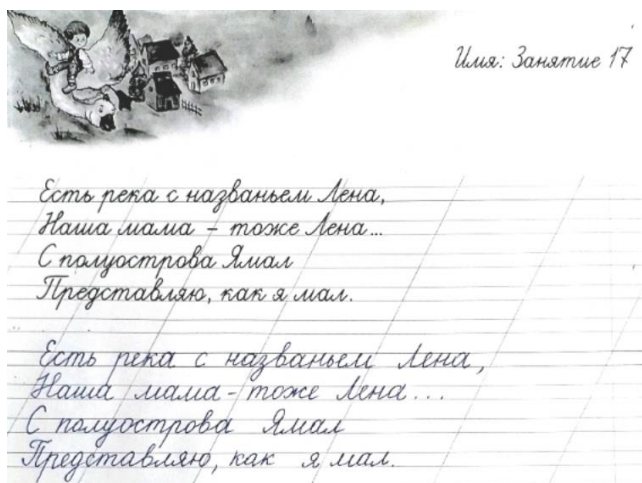 Имя: Занятие 17
Есть река с названьем Лена,
Наша мама - тоже Лена...
С полуострова Ямал
Представляю, как я мал.
Есть река с названьем Лена,
Наша мама - тоже Лена...
С полуострова Ямал
Представляю, как я мал.